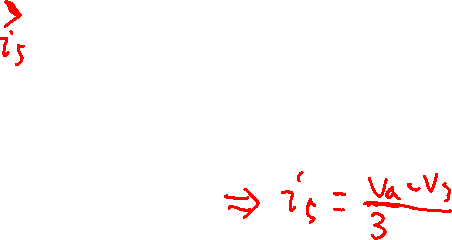 >
i₅
⇒ i₅ = (Va - V₃)/3